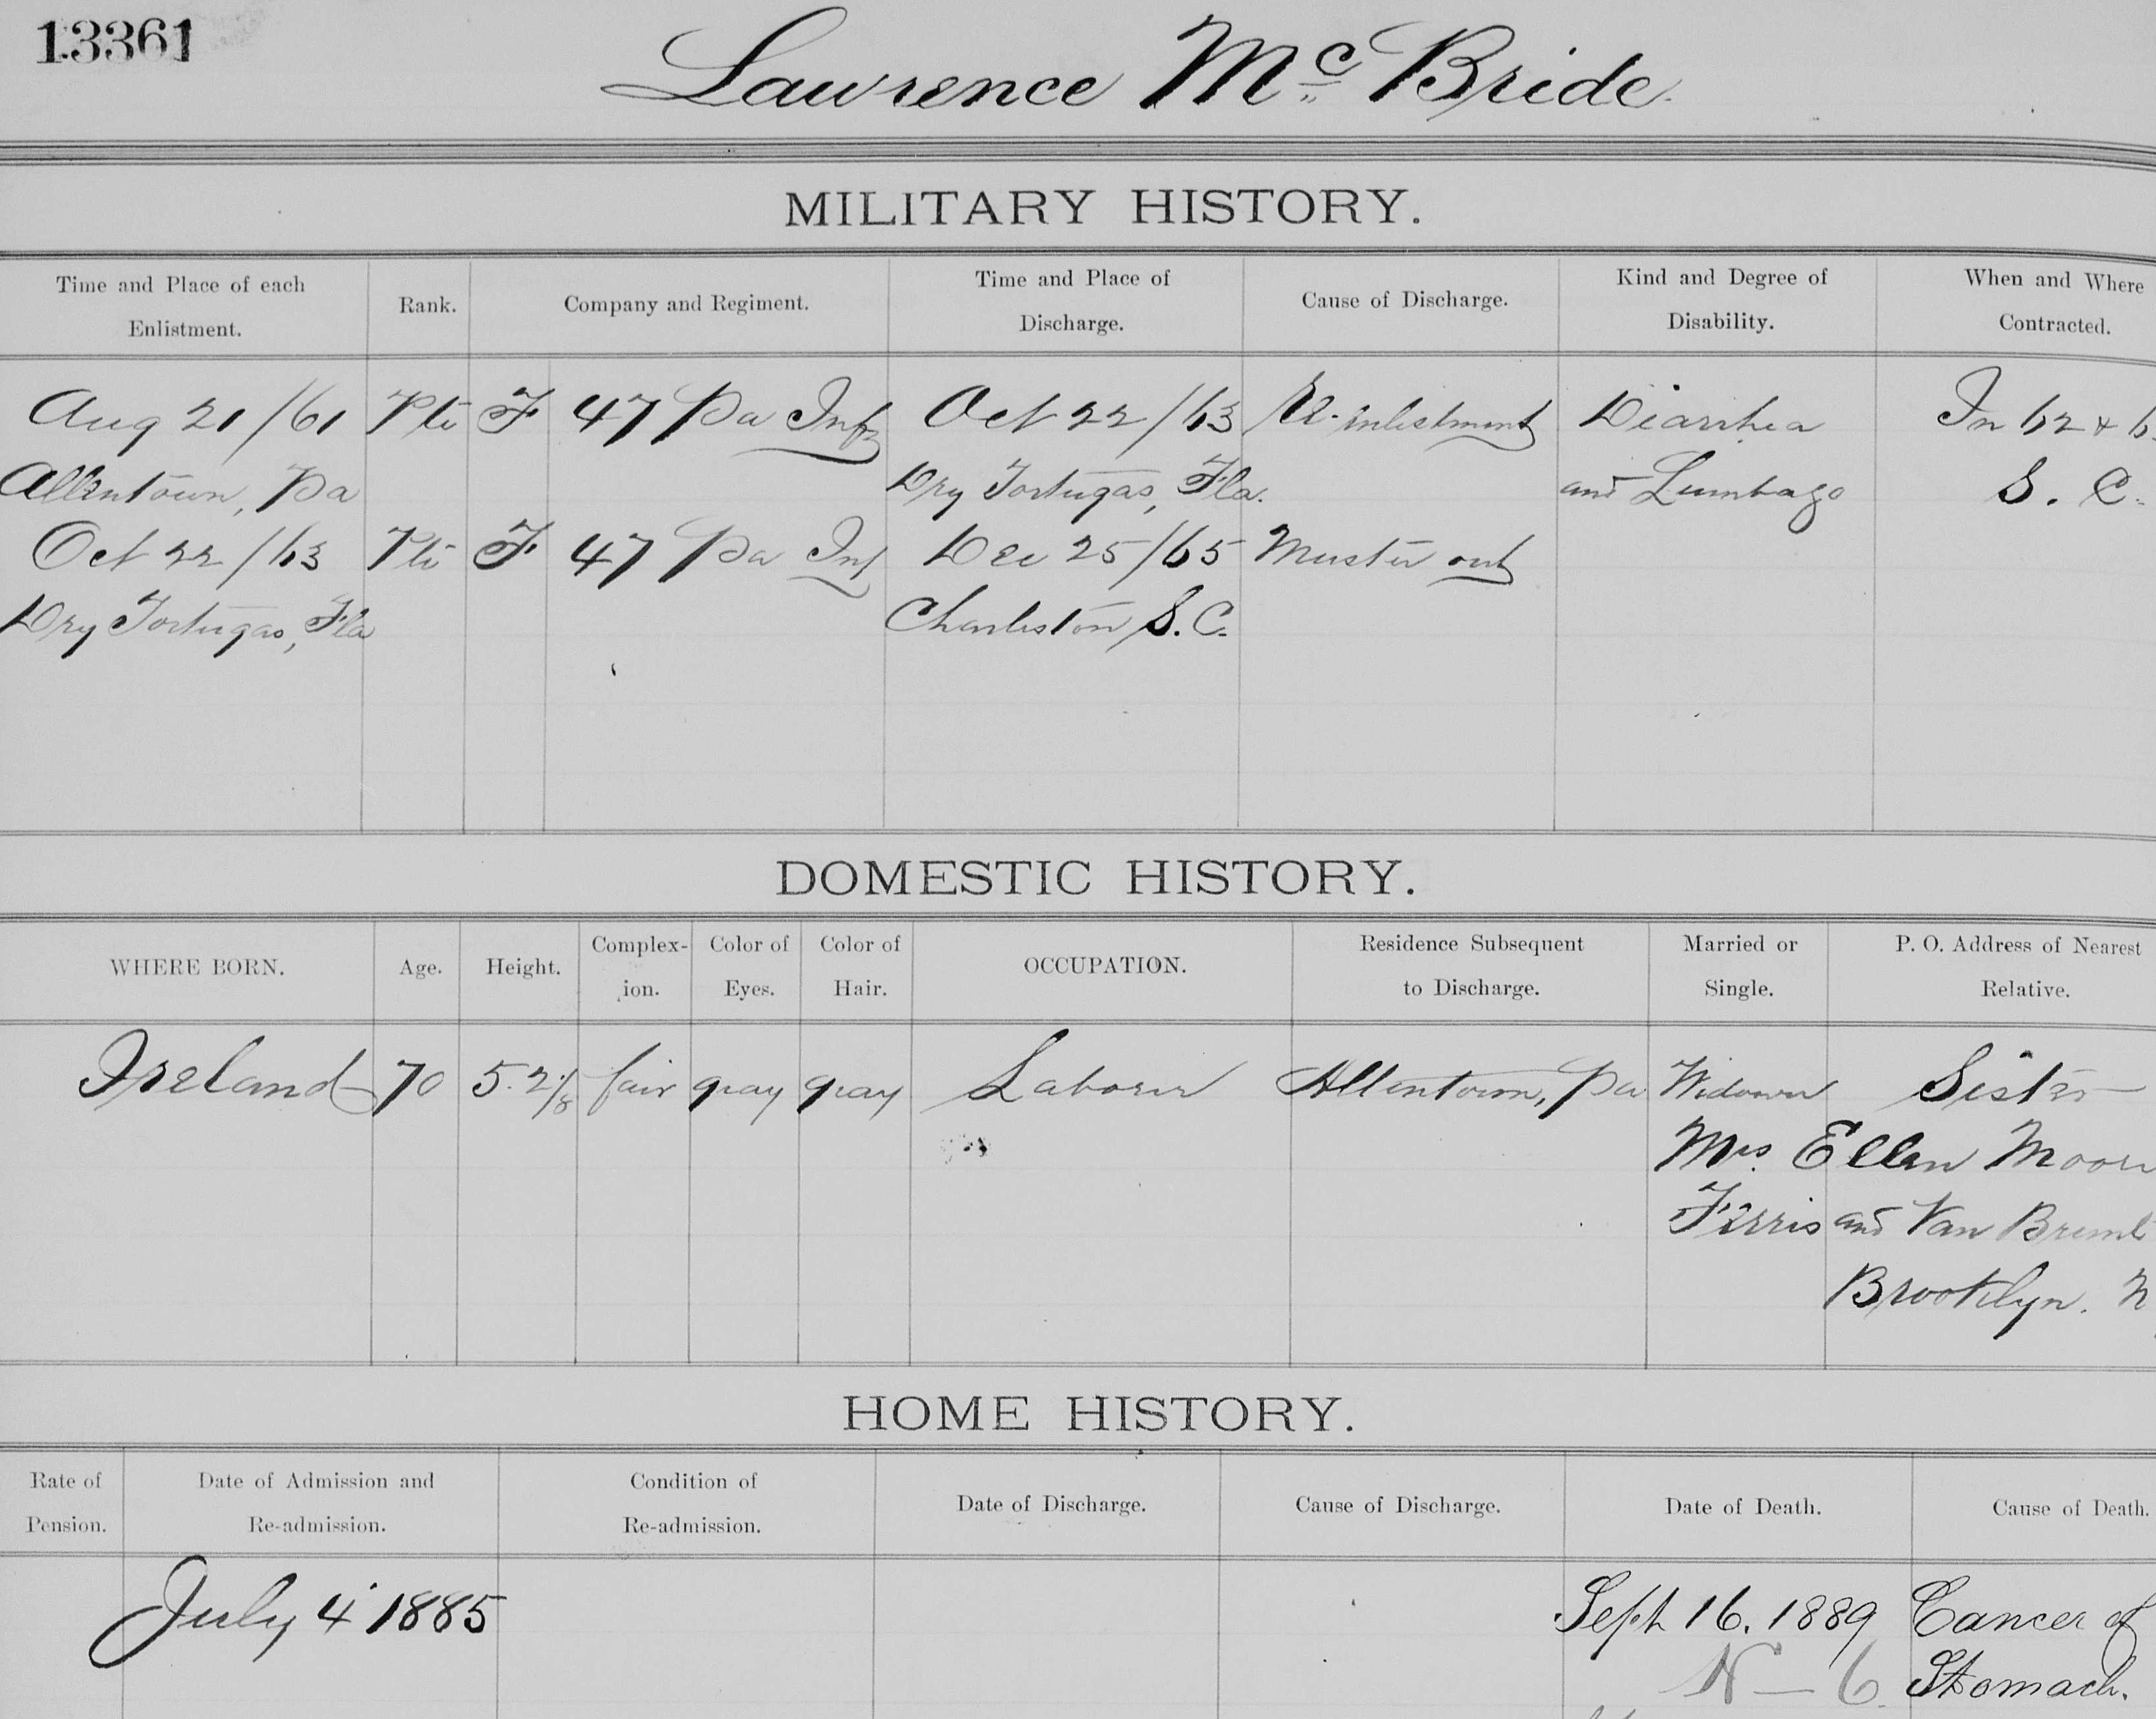 13361
Lawrence Mc Bride
MILITARY HISTORY.
Time and Place of each Enlistment. Rank. Company and Regiment. Time and Place of Discharge. Cause of Discharge. Kind and Degree of Disability. When and Where Contracted.
Aug 21/61 Pti F 47 Pa Inf Oct 22/63 Re-inlistment Diarrhea In 62 &
Allentown, Pa Dry Tortugas, Fla. and Lumbago S. C.
Oct 22/63 Pti F 47 Pa Inf Dec 25/65 Muster out
Dry Tortugas, Fla Charleston S.C.
DOMESTIC HISTORY.
WHERE BORN. Age. Height. Complex-ion. Color of Eyes. Color of Hair. OCCUPATION. Residence Subsequent to Discharge. Married or Single. P. O. Address of Nearest Relative.
Ireland 70 5.2 1/8 fair gray gray Laborer Allentown, Pa Widower Sister
Mrs. Ellen Moore
Ferris and Van Brunt
Brooklyn. N
HOME HISTORY.
Rate of Pension. Date of Admission and Re-admission. Condition of Re-admission. Date of Discharge. Cause of Discharge. Date of Death. Cause of Death.
July 4 1885 Sept 16. 1889 Cancer of
N - 6 Stomach.